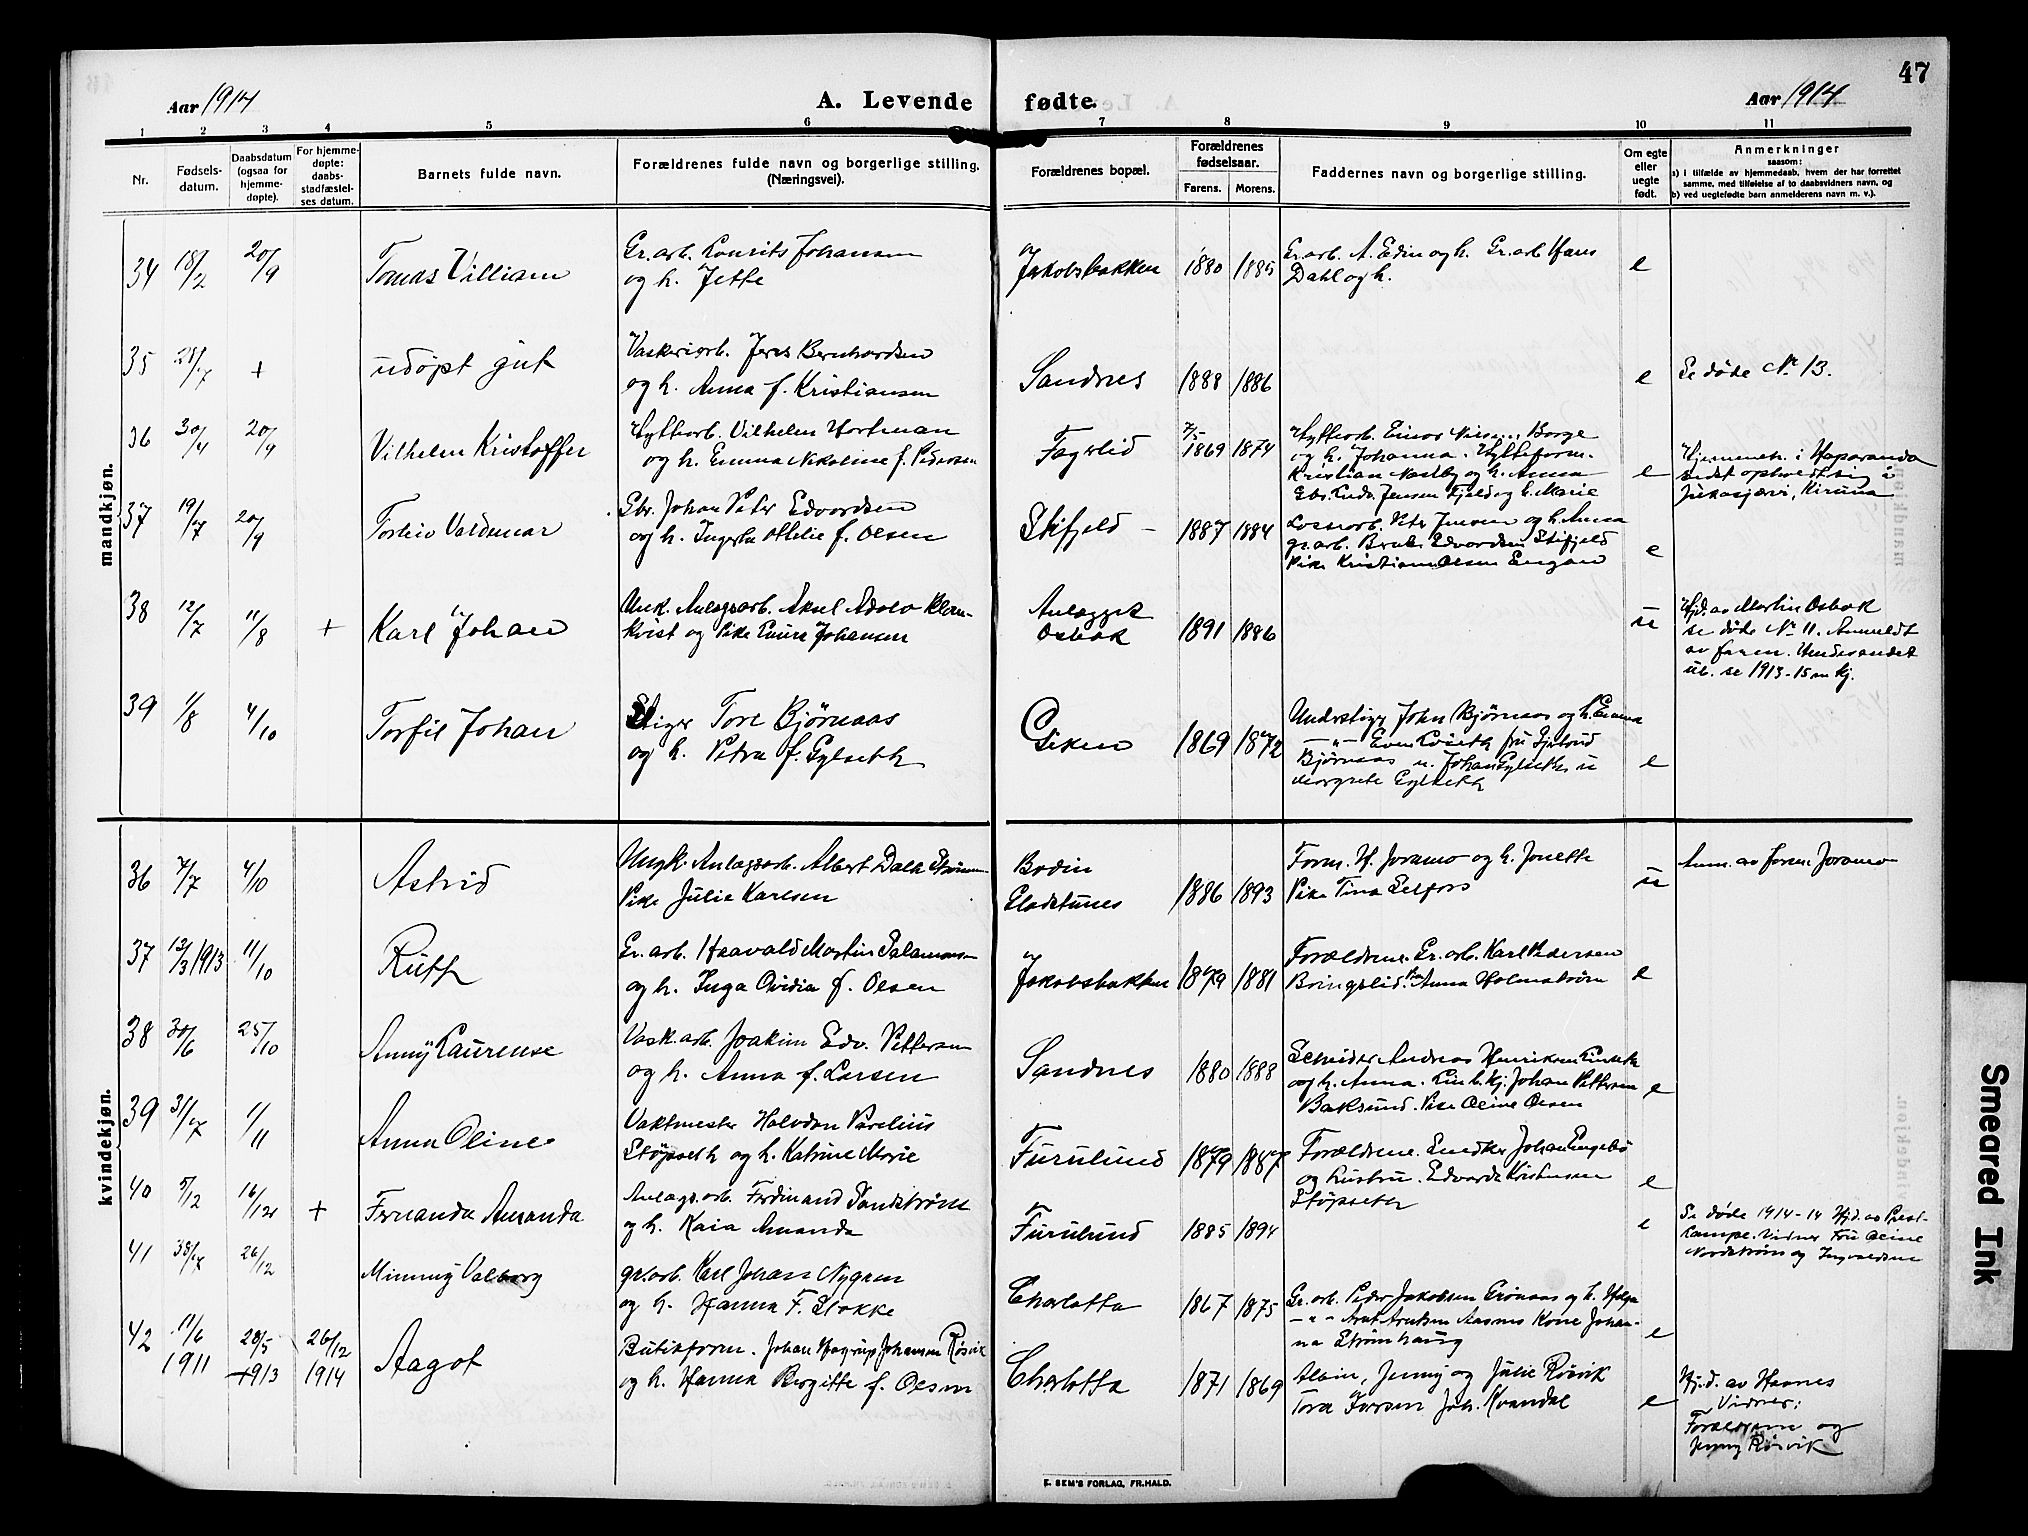 47
Aar 1914
A. Levende fødte.
Aar 1914
1 2 3 4 5 6 7 8 9 10 11
Nr.
Fødsels-
datum.
Daabsdatum
(ogsaa for
hjemme-
døpte).
For hjemme-
døpte:
daabs-
stadfæstel-
ses datum.
Barnets fulde navn.
Forældrenes fulde navn og borgerlige stilling.
(Næringsvei).
Forældrenes bopæl.
Forældrenes
fødselsaar.
Farens. Morens.
Faddernes navn og borgerlige stilling.
Om egte
eller
uegte
født.
Anmerkninger
saasom:
a) i tilfælde av hjemmedaab, hvem der har forrettet
samme, med tilføielse af to daabsvidners navn, og
b) ved uegtefødte barn anmelderens navn m. v.).
mandkjøn.
34 18/2 20/9 Tomas Villiam
Gr.arb. Lourits Johansen
og h. Jette
Jakobsbakken 1880 1885
Gr.arb. A. Edin og h. Gr.arb Hans
Dahl og h.
e
35 28/7 + udøpt gut
Vaskeriarb. Jens Bernhardsen
og h. Anna f. Kristiansen
Sandnes 1888 1886 e Se døde No 13.
36 30/4 20/9 Vilhelm Kristoffer
Hyttearb. Vilhelm Hortman
og h. Emma Nikoline f. Pedersen
Fagerlid 7/5 1869 1874
Hyttearb. Einar Nilsen, Borge
og h. Johanna. Hytteform.
Kristian Nastby og h. Anna
Gbr. Ludv. Jensen Fjeld og h. Marie
e
Hjemmeh. i Haparanda
sidst opholdt sig i
Jukasjærvi, Kiruna
37 19/7 20/9 Torleiv Valdemar
Gbr. Johan Peter Edvardsen
og h. Ingerta Otelie f. Olsen
Stifjeld - 1887 1884
Lossearb. Peter Jensen og h. Anna
gr.arb. Bernt Edvardsen Stifjeld
Pike Kristiane Olsen Engan
e
38 12/7 11/8 + Karl Johan
Unk. Anlægsarb. Aksel Adolv Blom-
kvist og Pike Emma Johansen
Anlægget
Osbak
1891 1886 u
Hjd. av Martin Osbak
se døde No 11. Anmeldt
av faren. Undersaadet
ub. se 1913-15 m kj.
39 1/8 4/10 Torfil Johan
Stiger Tore Bjørnaas
og h. Petra f. Gylseth
Giken 1869 1872
Understiger John Bjørnaas og h. Emma
-"- Even Løseth fru Gjertrud
Bjørnaas u. Johan Gylseth u
Margrete Gylseth
e
kvindekjøn.
36 7/7 4/10 Astrid
Ungk. Anlægsarb. Albert Dahl Strømm-
Pike Julie Karlsen
Bodin
Sladstunes
1886 1893
Form. H. Joramo og h. Jonette
Pike Tina Selfors
u Anm. av form. Joramo
37 13/3 1913 11/10 Ruth
Gr.arb. Haavald Martin Salamons-
og h. Inga Ovidia f. Olsen
Jakobsbakken 1879 1881
Forældrene. Gr.arb. Karl Pedersen
Bringslid. Pike Anna Holmstrøm
e
38 30/6 25/10 Anny Laurense
Vask.arb. Joakim Edv. Pettersen
og h. Anna f. Larsen
Sandnes 1880 1888
Scheider Andreas Henriksen
og h. Anna. Johan Pettersen
Baksund. Pike Oline Olsen
e
39 31/7 1/11 Anna Oline
Vaktmester Halvdan Parelius
Støpseth og h. Katrine Marie
Furulund 1879 1887
Forældrene. Snedker Johan Engebø
og hustru. Edvarda Kristensen
Støpseth
e
40 5/12 16/12 + Fernanda Amanda
Anlægs.arb. Ferdinand Sandstrøm
og h. Kaia Amanda
Furulund 1885 1894 e
Se døde 1914-14 Hjd. av Prest
Kampe. Vidner Fru Oline
Nordstrøm og Ingvaldsen
41 30/7 26/12 Minny Valborg
gr.arb. Karl Johan Nygren
og h. Hanna F. Slokke
Charlotta 1867 1875
Gr.arb. Peder Jakobsen Grønaas og h. Helga
-"- Arnt Arntsen Aasnes Kone Johan-
na Strømhaug
e
42 11/6 1911 28/5 1913 26/12 1914 Aagot
Butikform. Johan Hagrup Johansen Røsvik
og h. Hanna Bergitte f. Olsen
Charlotta 1871 1869
Alvin, Jenny og Julie Røsvik
Tora Iversen Joh. Kvandal
e
Hjd. av Hannes
Vidner:
Forældrene og
Jenny Røsvik
E. SEM'S FORLAG, FR.HALD.
Smeared Ink